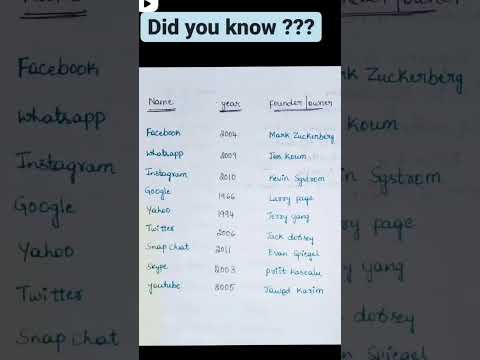 Did you know ???
Name year Founder/owner
Facebook 2004 Mark Zuckerberg
whatsapp 2009 Jan Koum
Instagram 2010 Kevin Systrom
Google 1966 Larry page
Yahoo 1994 Jerry yang
Twitter 2006 Jack dorsey
Snap chat 2011 Evan Spiegel
Skype 2003 priit kasealu
youtube 2005 Jawed Karim
Facebook
whatsapp
Instagram
Google
Yahoo
Twitter
Snap chat
Zuckerberg
Koum
Systrom
page
yang
dorsey
Spiegel